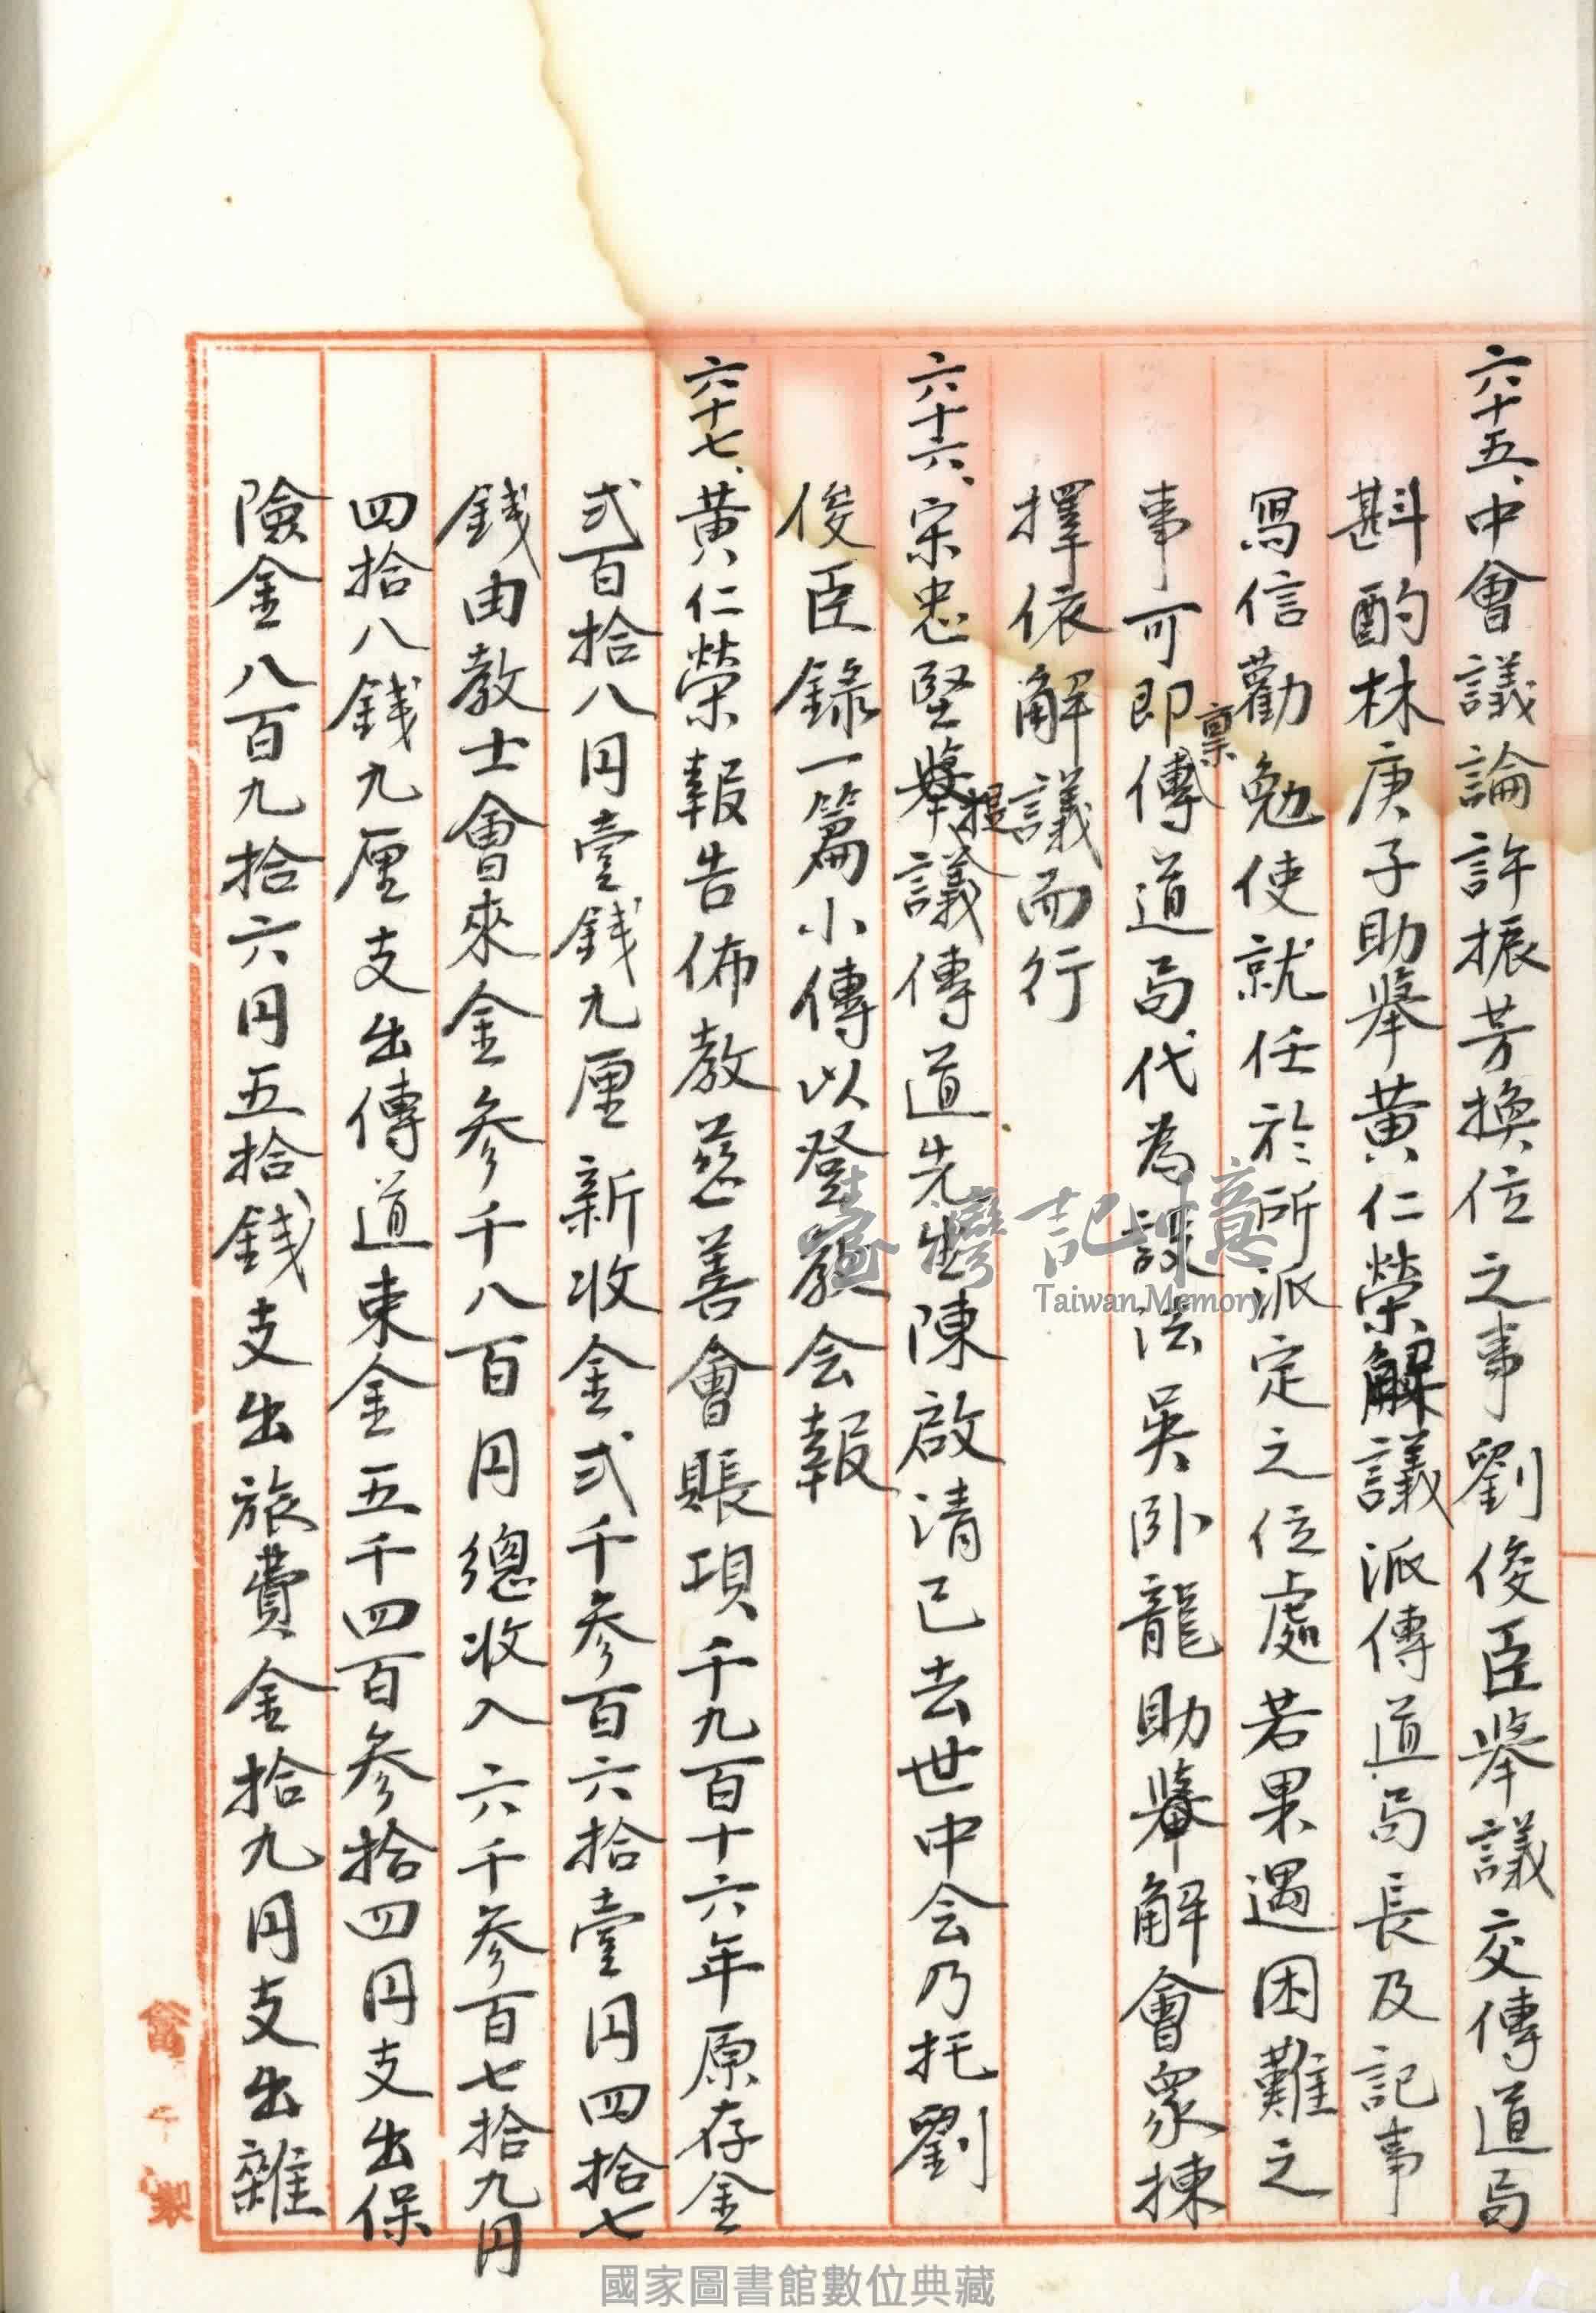 六十五、中會議論許振芳換位之事 劉俊臣舉議交傳道局
斟酌林庚子助舉黃仁榮解議派傳道局長及記事
寫信勸勉使就任於所派定之位處若果遇困難之
事可即稟傳道局代為設法吳臥龍助舉解會眾揀
擇依解議而行
六十六、宋忠堅舉提議傳道先生陳啟清已去世中会乃托劉
俊臣錄一篇小傳以登教会報
六十七、黃仁榮報告佈教慈善會賬項千九百十六年原存金
弍百拾八円壹錢九厘新收金弍千参百六拾壹円四拾七
錢由教士會來金参千八百円總收入六千参百七拾九円
四拾八錢九厘支出傳道束金五千四百参拾四円支出保
險金八百九拾六円五拾錢支出旅費金拾九円支出雜
臺灣記憶
Taiwan Memory
國家圖書館數位典藏